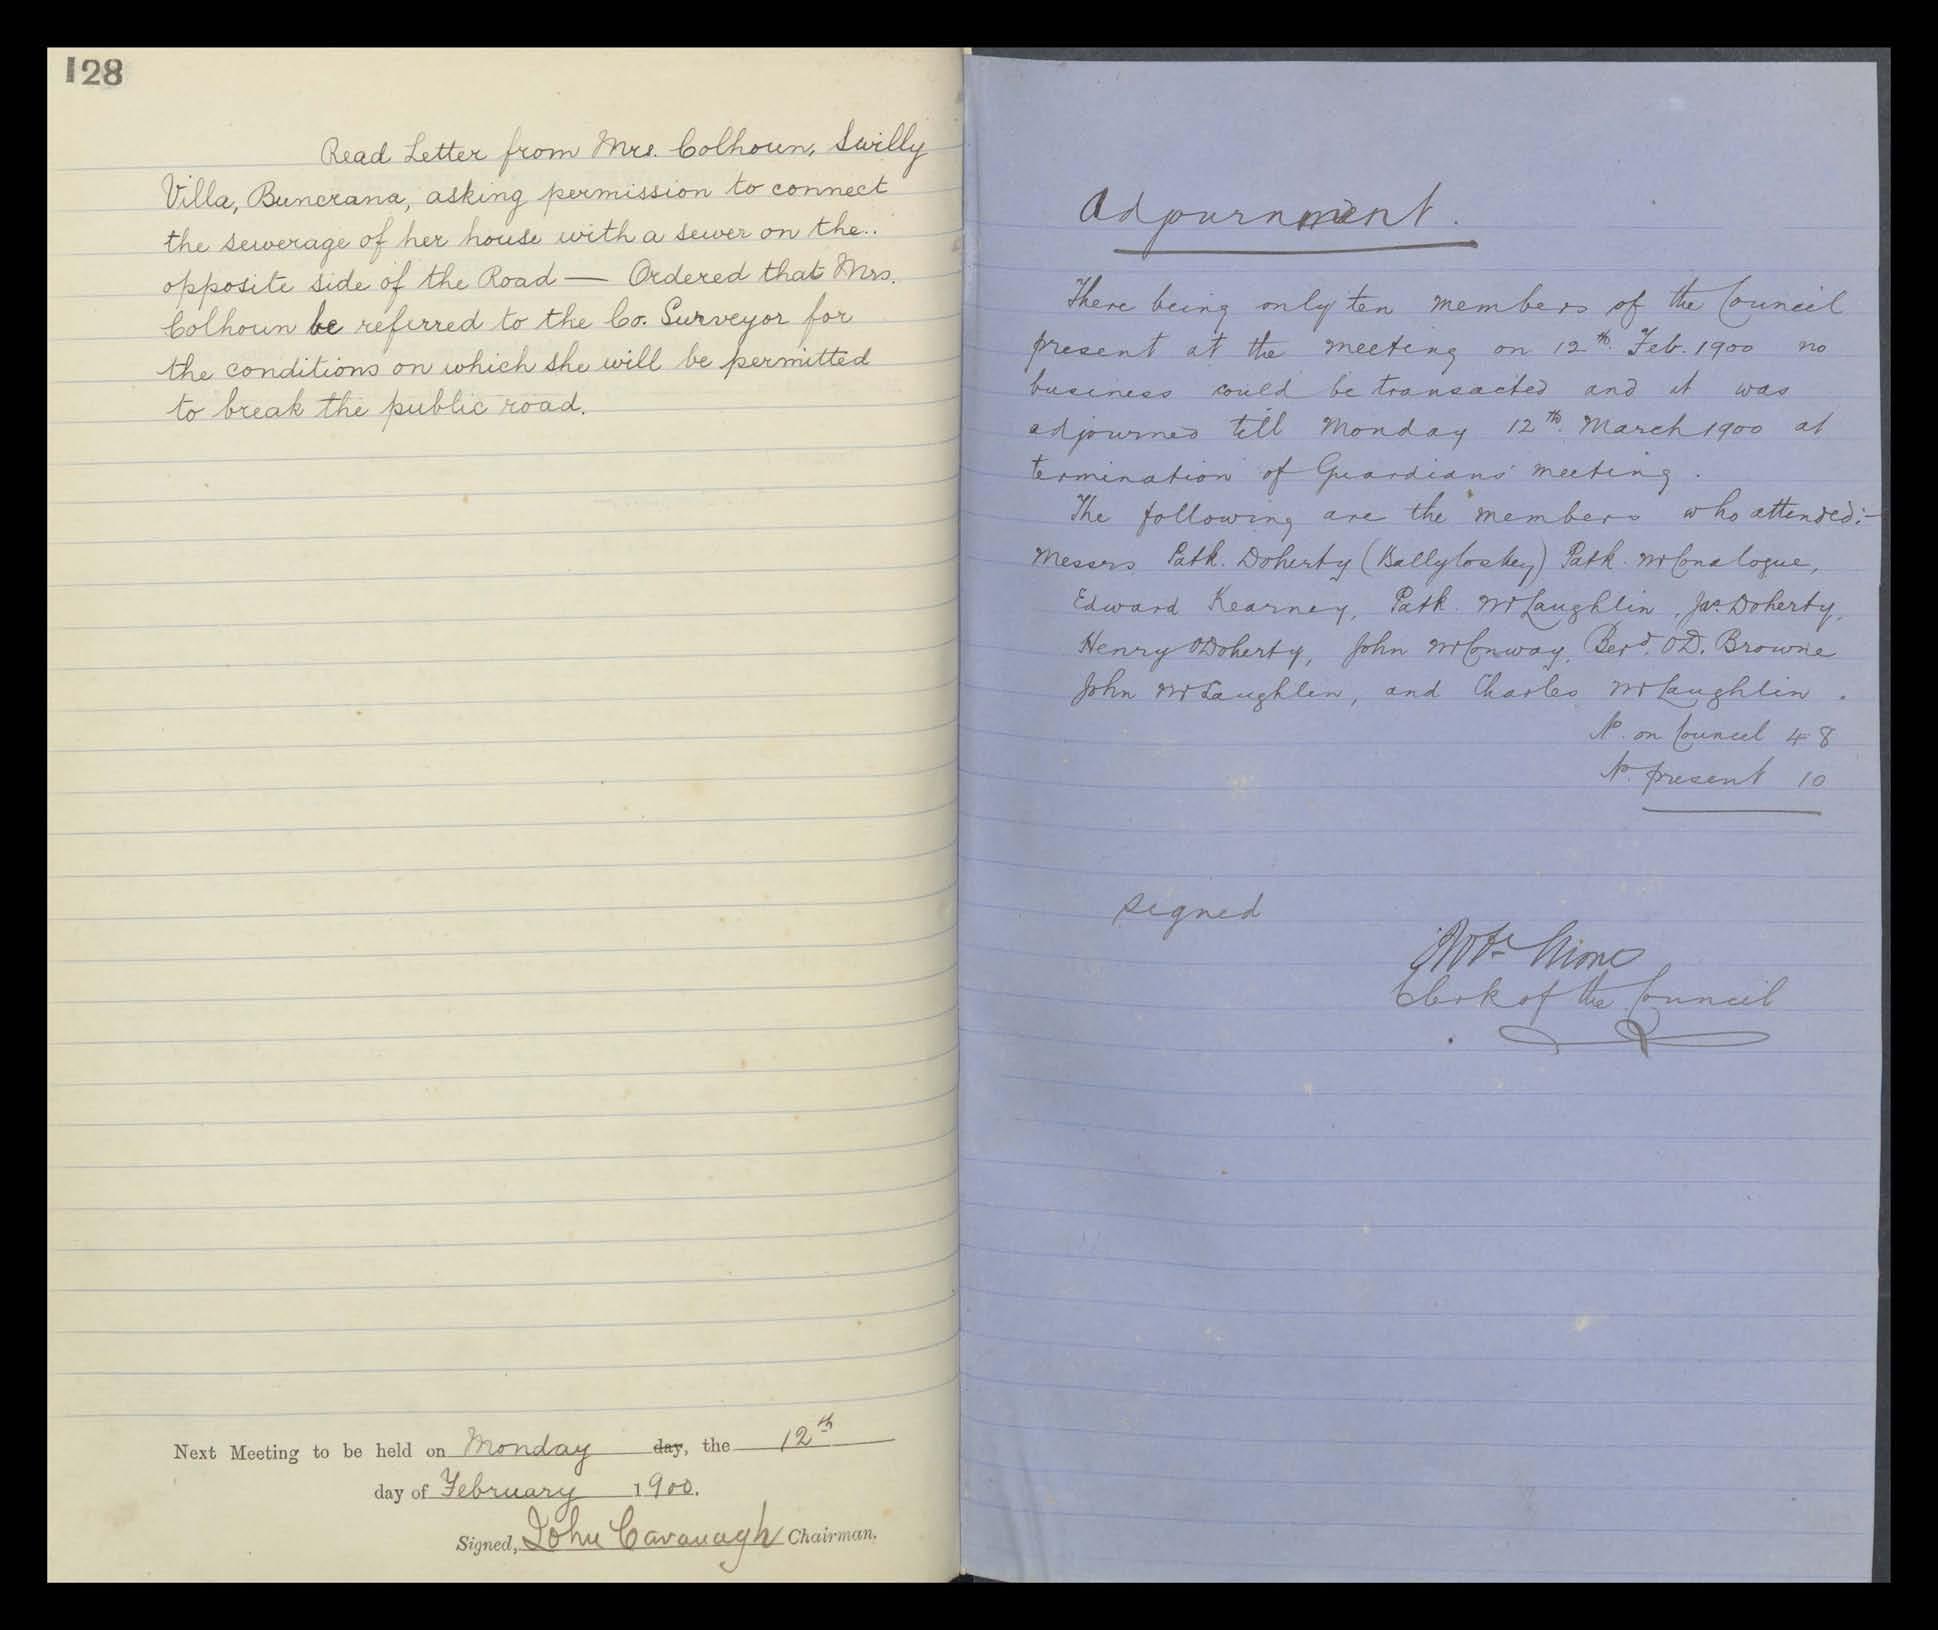 128
Read Letter from Mrs. Colhoun, Swilly
Villa, Buncrana, asking permission to connect
the sewerage of her house with a sewer on the..
opposite side of the Road — Ordered that Mrs.
Colhoun be referred to the Co. Surveyor for
the conditions on which she will be permitted
to break the public road.
Next Meeting to be held on Monday day, the 12th
day of February 1900.
Signed, John Cavanagh Chairman.
Adjournment.
There being only ten members of the Council
present at the meeting on 12th. Feb. 1900 no
business could be transacted and it was
adjourned till Monday 12th. March 1900 at
termination of Guardians' meeting.
The following are the members who attended:-
Messrs Patk. Doherty (Ballyloskey) Patk. McConalogue,
Edward Kearney, Patk. McLaughlin, Jas. Doherty,
Henry O'Doherty, John McConway, Berd. O'D. Browne
John McLaughlin, and Charles McLaughlin.
No. on Council 48
No. present 10
signed
Clerk of the Council